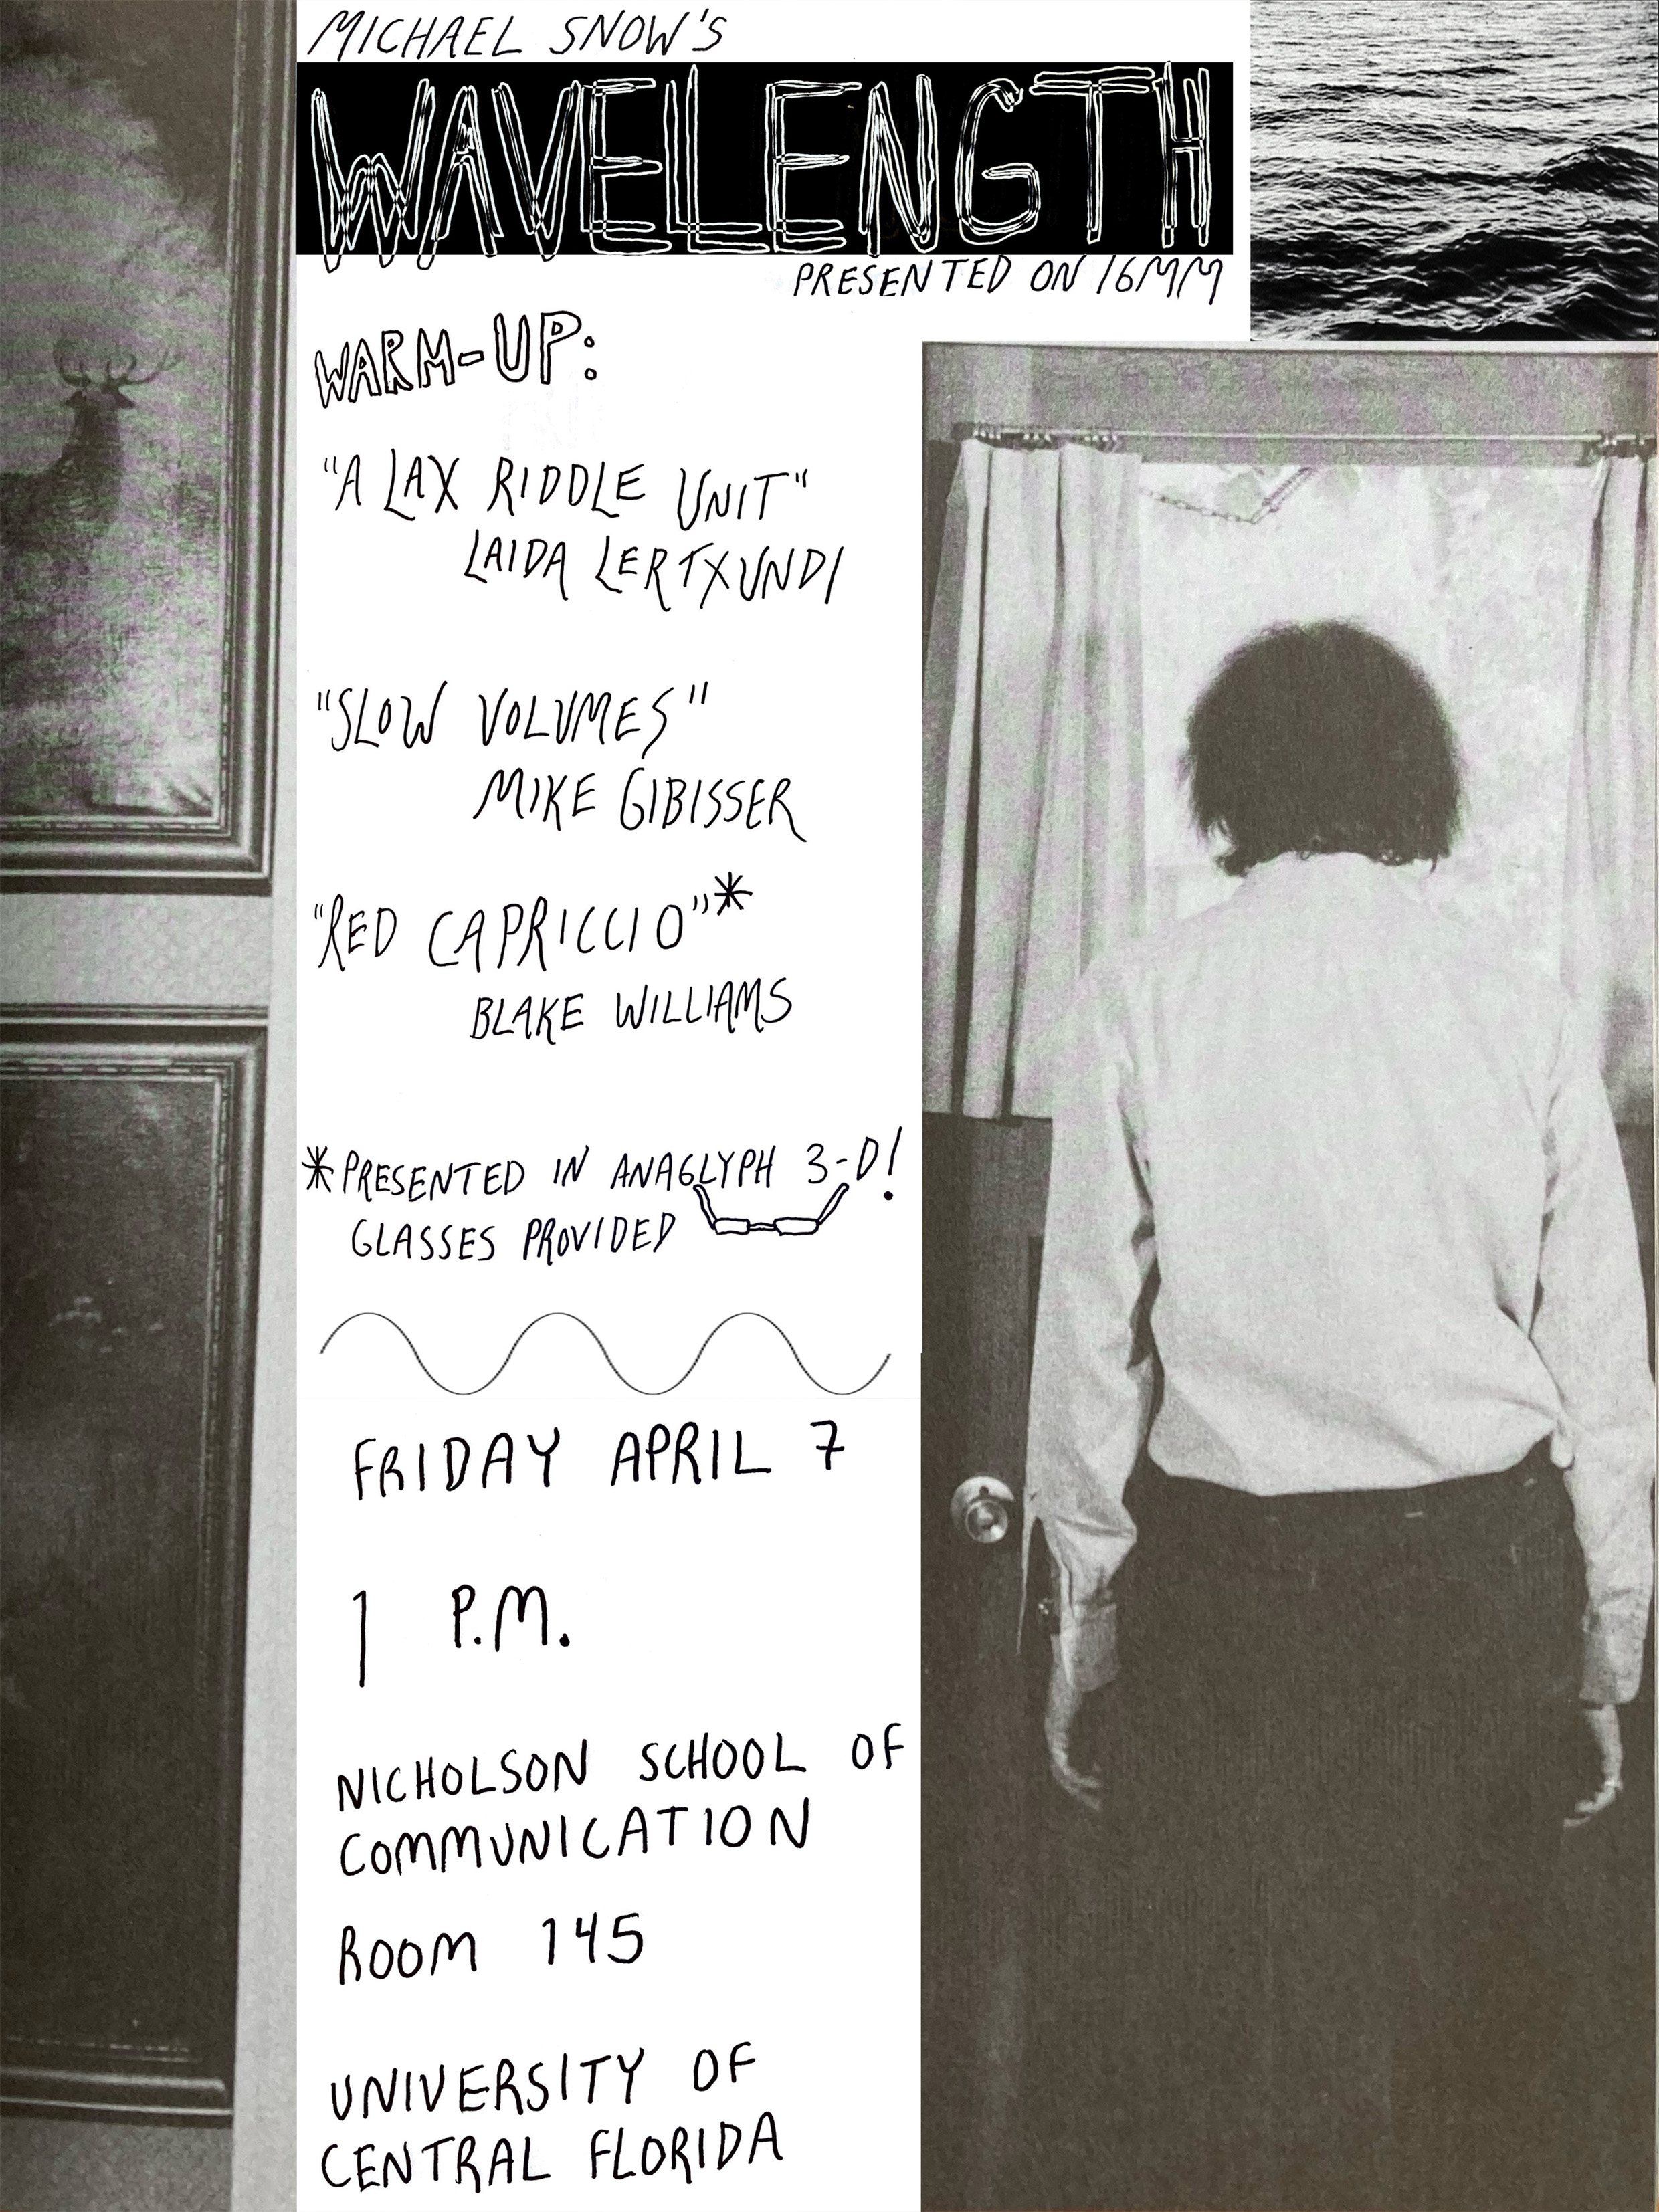 MICHAEL SNOW'S
WAVELENGTH
PRESENTED ON 16MM
WARM-UP:
"A LAX RIDDLE UNIT"
LAIDA LERTXUNDI
"SLOW VOLUMES"
MIKE GIBISSER
"RED CAPRICCIO"*
BLAKE WILLIAMS
*PRESENTED IN ANAGLYPH 3-D!
GLASSES PROVIDED
FRIDAY APRIL 7
1 P.M.
NICHOLSON SCHOOL OF
COMMUNICATION
ROOM 145
UNIVERSITY OF
CENTRAL FLORIDA